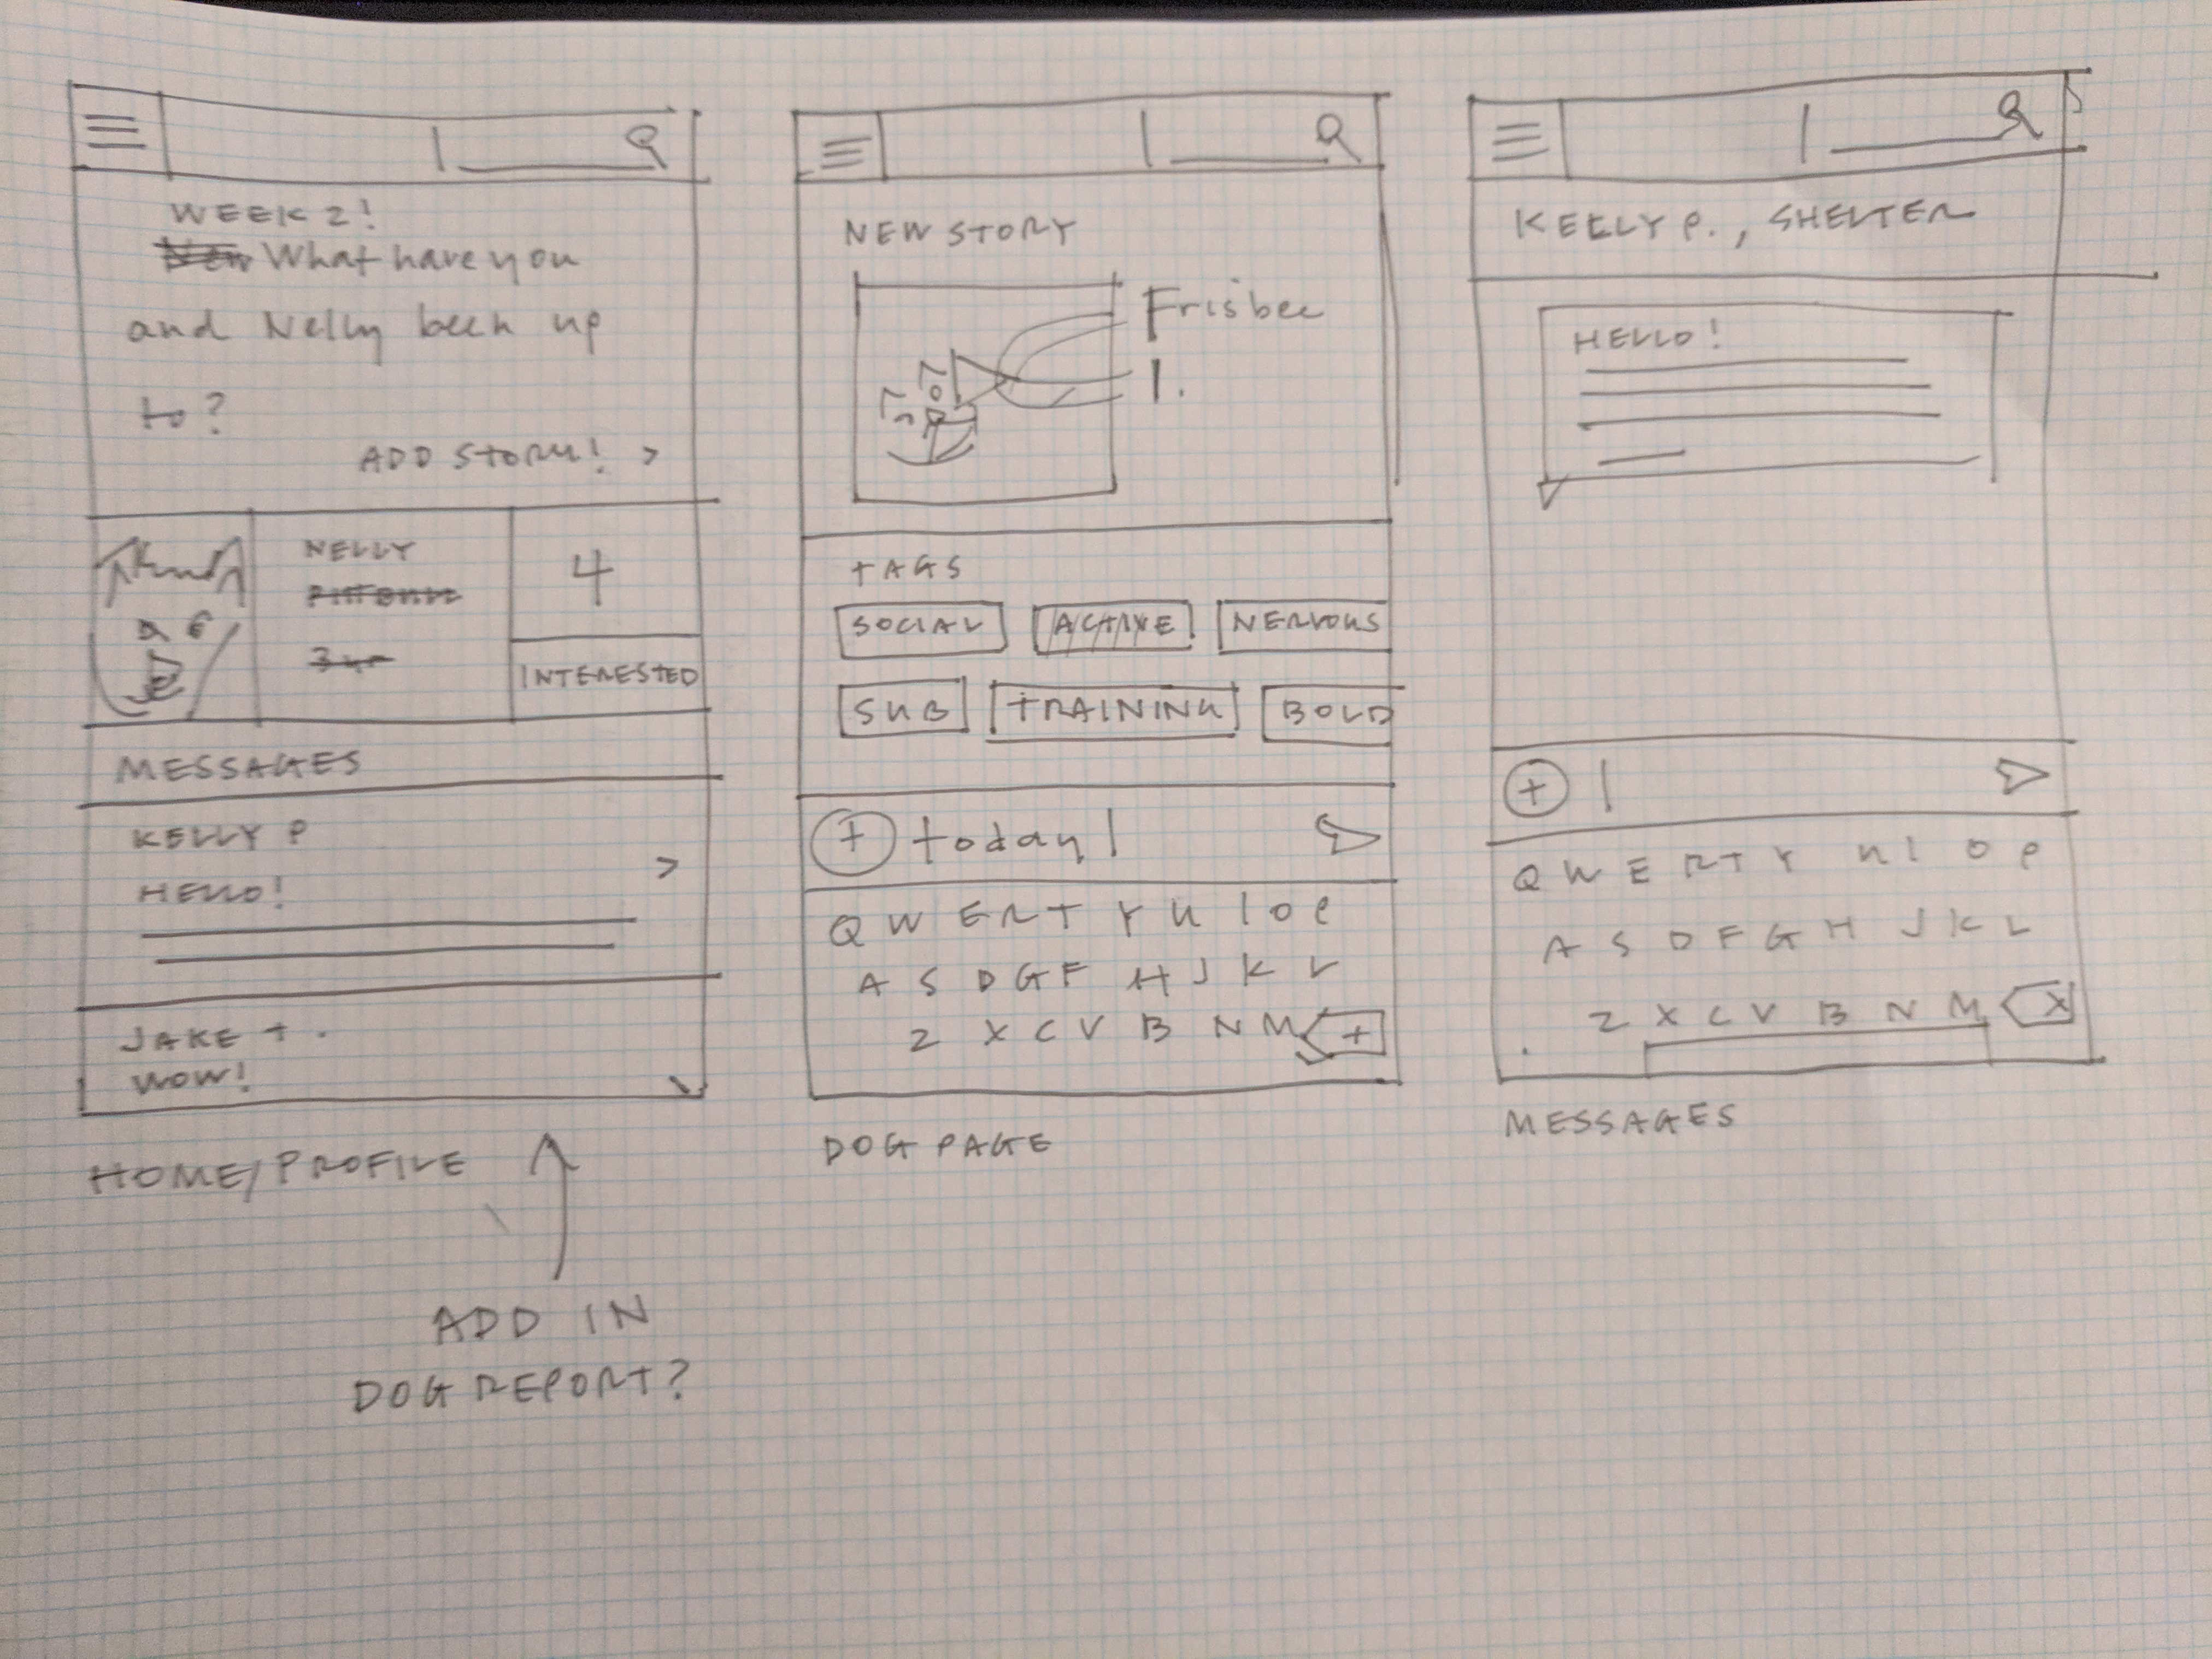 WEEK 2!
What have you
and Nelly been up
to?
ADD STORY! >
NELLY
4
INTERESTED
MESSAGES
KELLY P
HELLO!
>
JAKE T.
WOW!
HOME/PROFILE
ADD IN
DOG REPORT?
NEW STORY
Frisbee
1.
TAGS
SOCIAL ACTIVE NERVOUS
SUB TRAINING BOLD
+ today|
Q W E R T Y U I O P
A S D G F H J K L
Z X C V B N M +
DOG PAGE
KELLY P., SHELTER
HELLO!
+ |
Q W E R T Y U I O P
A S D F G H J K L
Z X C V B N M X
MESSAGES